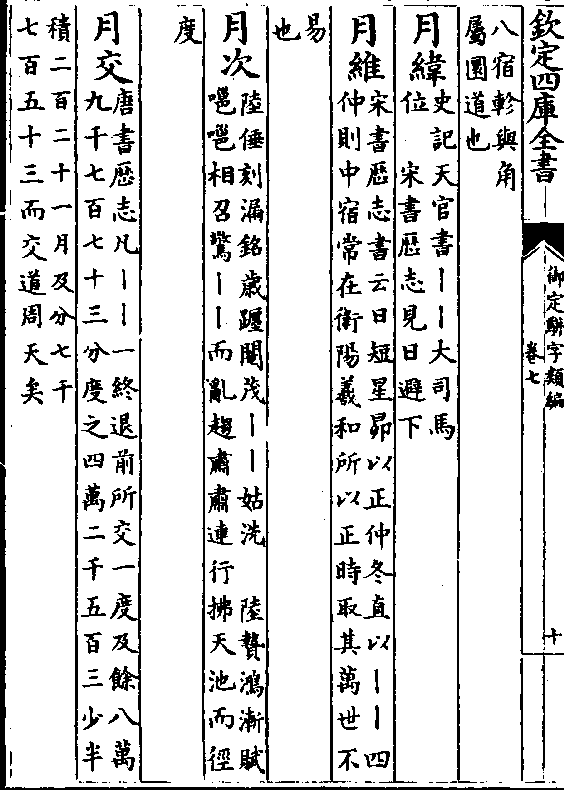 欽定四庫全書
御定騈字類編
卷七
十
八宿軫與角
屬圜道也
月緯
史記天官書丨丨大司馬
位　宋書厯志見日避下
月維
宋書厯志書云日短星昴以正仲冬直以丨丨四
仲則中宿常在衛陽羲和所以正時取其萬世不
易
也
月次
陸倕刻漏銘歲躔閹茂丨丨姑洗　陸贄鴻漸賦
嗈嗈相召驚丨丨而亂趨肅肅連行拂天池而徑
度
月交
唐書厯志凡丨丨一終退前所交一度及餘八萬
九千七百七十三分度之四萬二千五百三少半
積二百二十一月及分七千
七百五十三而交道周天矣